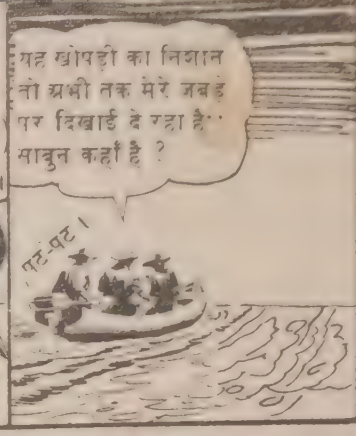 यह खोपड़ी का निशान
तो अभी तक मेरे जबड़े
पर दिखाई दे रहा है··
साबुन कहाँ है ?
पट-पट।